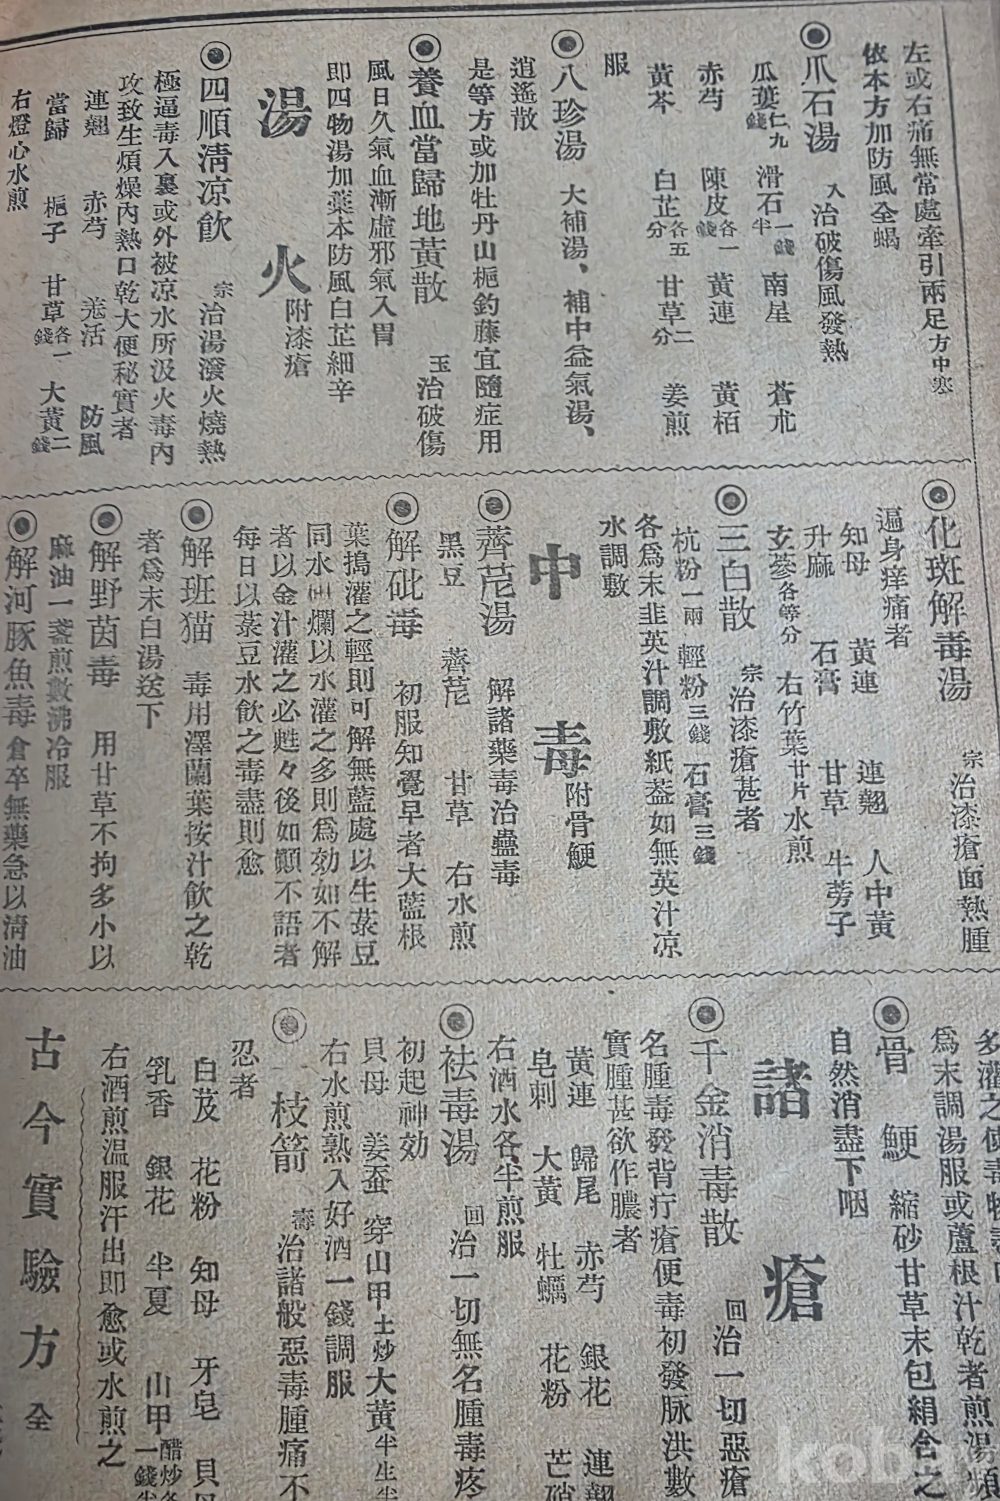 左或右痛無常處牽引兩足方中寒
依本方加防風全蝎
◉爪石湯 入治破傷風發熱
瓜蔞仁九錢 滑石一錢半 南星 蒼朮
赤芍 陳皮各一錢 黃連 黃栢
黃芩 白芷各五分 甘草二分 姜煎
服
◉八珍湯 大補湯、補中益氣湯、
逍遙散
是等方或加牡丹山梔釣藤宜隨症用
◉養血當歸地黃散 玉治破傷
風日久氣血漸虛邪氣入胃
即四物湯加藁本防風白芷細辛
湯火 附漆瘡
◉四順淸凉飮 宗治湯潑火燒熱
極逼毒入裏或外被凉水所汲火毒內
攻致生煩燥內熱口乾大便秘實者
連翹 赤芍 羌活 防風
當歸 梔子 甘草各一錢 大黃二錢
右燈心水煎
◉化斑解毒湯 宗治漆瘡面熱腫
遍身痒痛者
知母 黃連 連翹 人中黃
升麻 石膏 甘草 牛蒡子
玄蔘各等分 右竹葉廿片水煎
◉三白散 宗治漆瘡甚者
杭粉一兩 輕粉三錢 石膏三錢
各爲末韭英汁調敷紙盖如無英汁凉
水調敷
中毒 附骨鯁
◉薺苨湯 解諸藥毒治蠱毒
黑豆 薺苨 甘草 右水煎
◉解砒毒 初服知覺早者大藍根
葉搗灌之輕則可解無藍處以生菉豆
同水 爛以水灌之多則爲効如不解
者以金汁灌之必甦々後如顚不語者
每日以菉豆水飮之毒盡則愈
◉解班猫 毒用澤蘭葉按汁飮之乾
者爲末白湯送下
◉解野茵毒 用甘草不拘多小以
麻油一盞煎數沸冷服
◉解河豚魚毒 倉卒無藥急以淸油
多灌之使毒物
爲末調湯服或蘆根汁乾者煎湯
◉骨鯁 縮砂甘草末包絹合之
自然消盡下咽
諸瘡
◉千金消毒散 回治一切惡瘡
名腫毒發背疔瘡便毒初發脉洪數
實腫甚欲作膿者
黃連 歸尾 赤芍 銀花 連翹
皂刺 大黃 牡蠣 花粉 芒硝
右酒水各半煎服
◉祛毒湯 回治一切無名腫毒疼
初起神効
貝母 姜蚕 穿山甲土炒大黃半生半
右水煎熟入好酒一錢調服
◉一枝箭 壽治諸般惡毒腫痛不
忍者
白芨 花粉 知母 牙皂 貝母
乳香 銀花 半夏 山甲醋炒各一錢半
右酒煎溫服汗出即愈或水煎之
古今實驗方 全